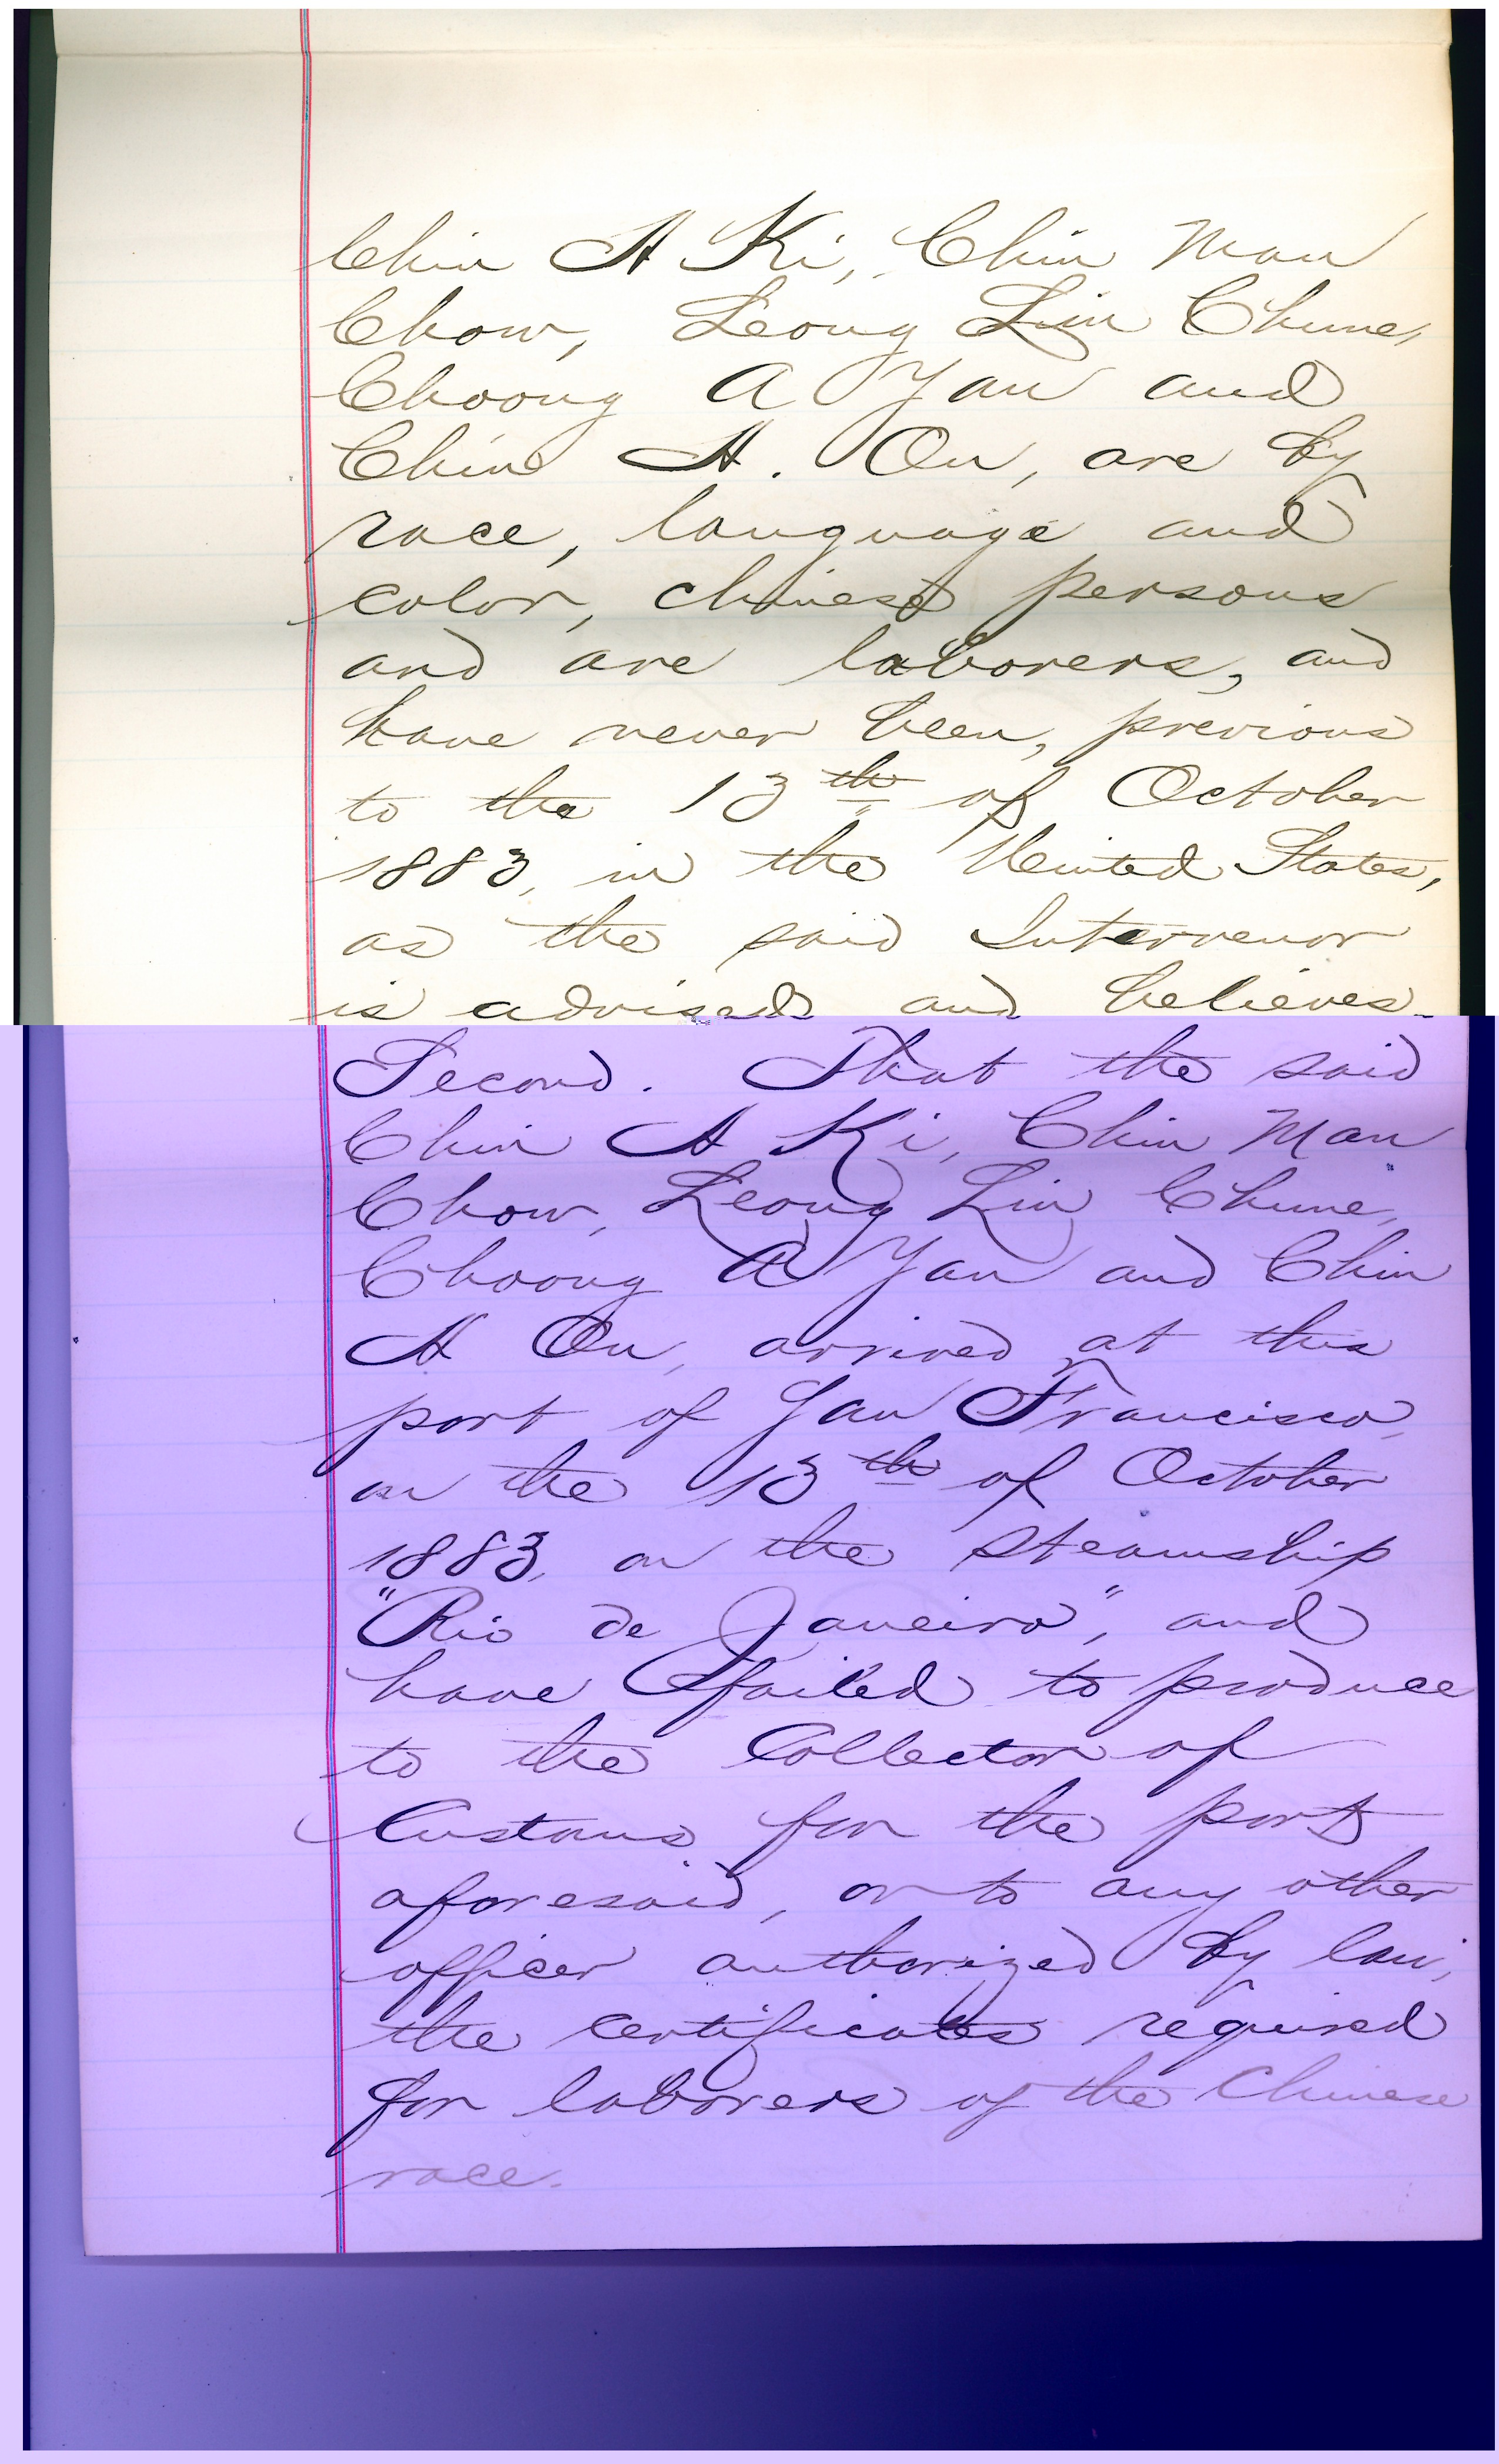 Chin A Ki, Chin Man
Chow, Leong Lin Chune,
Choong A Yan and
Chin A. On, are by
race, language and
color, chinese persons
and are laborers, and
have never been, previous
to the 13th of October
1883, in the United States,
as the said Intervenor
is advised and believes.
Second. That the said
Chin A Ki, Chin Man
Chow, Leong Lin Chune,
Choong A Yan and Chin
A On, arrived at this
port of San Francisco,
on the 13th of October
1883, on the steamship
"Rio de Janeiro", and
have failed to produce
to the Collector of
Customs for the port
aforesaid, or to any other
officer authorized by law,
the certificates required
for laborers of the Chinese
race.